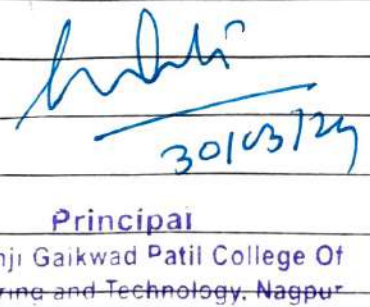 30/03/24
Principal
ji Gaikwad Patil College Of
ring and Technology, Nagpur